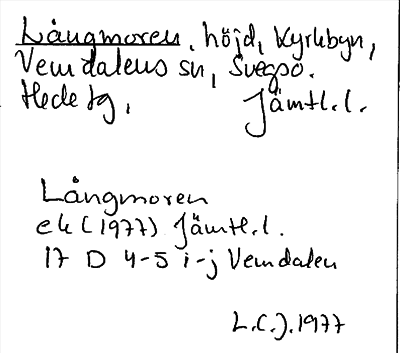 Långmoren, höjd, Kyrkbyn,
Vemdalens sn, Svegs o.
Hede tg, Jämtl.l.
Långmoren
ek (1977) Jämtl.l.
17 D 4-5 i-j Vemdalen
L.C.J. 1977